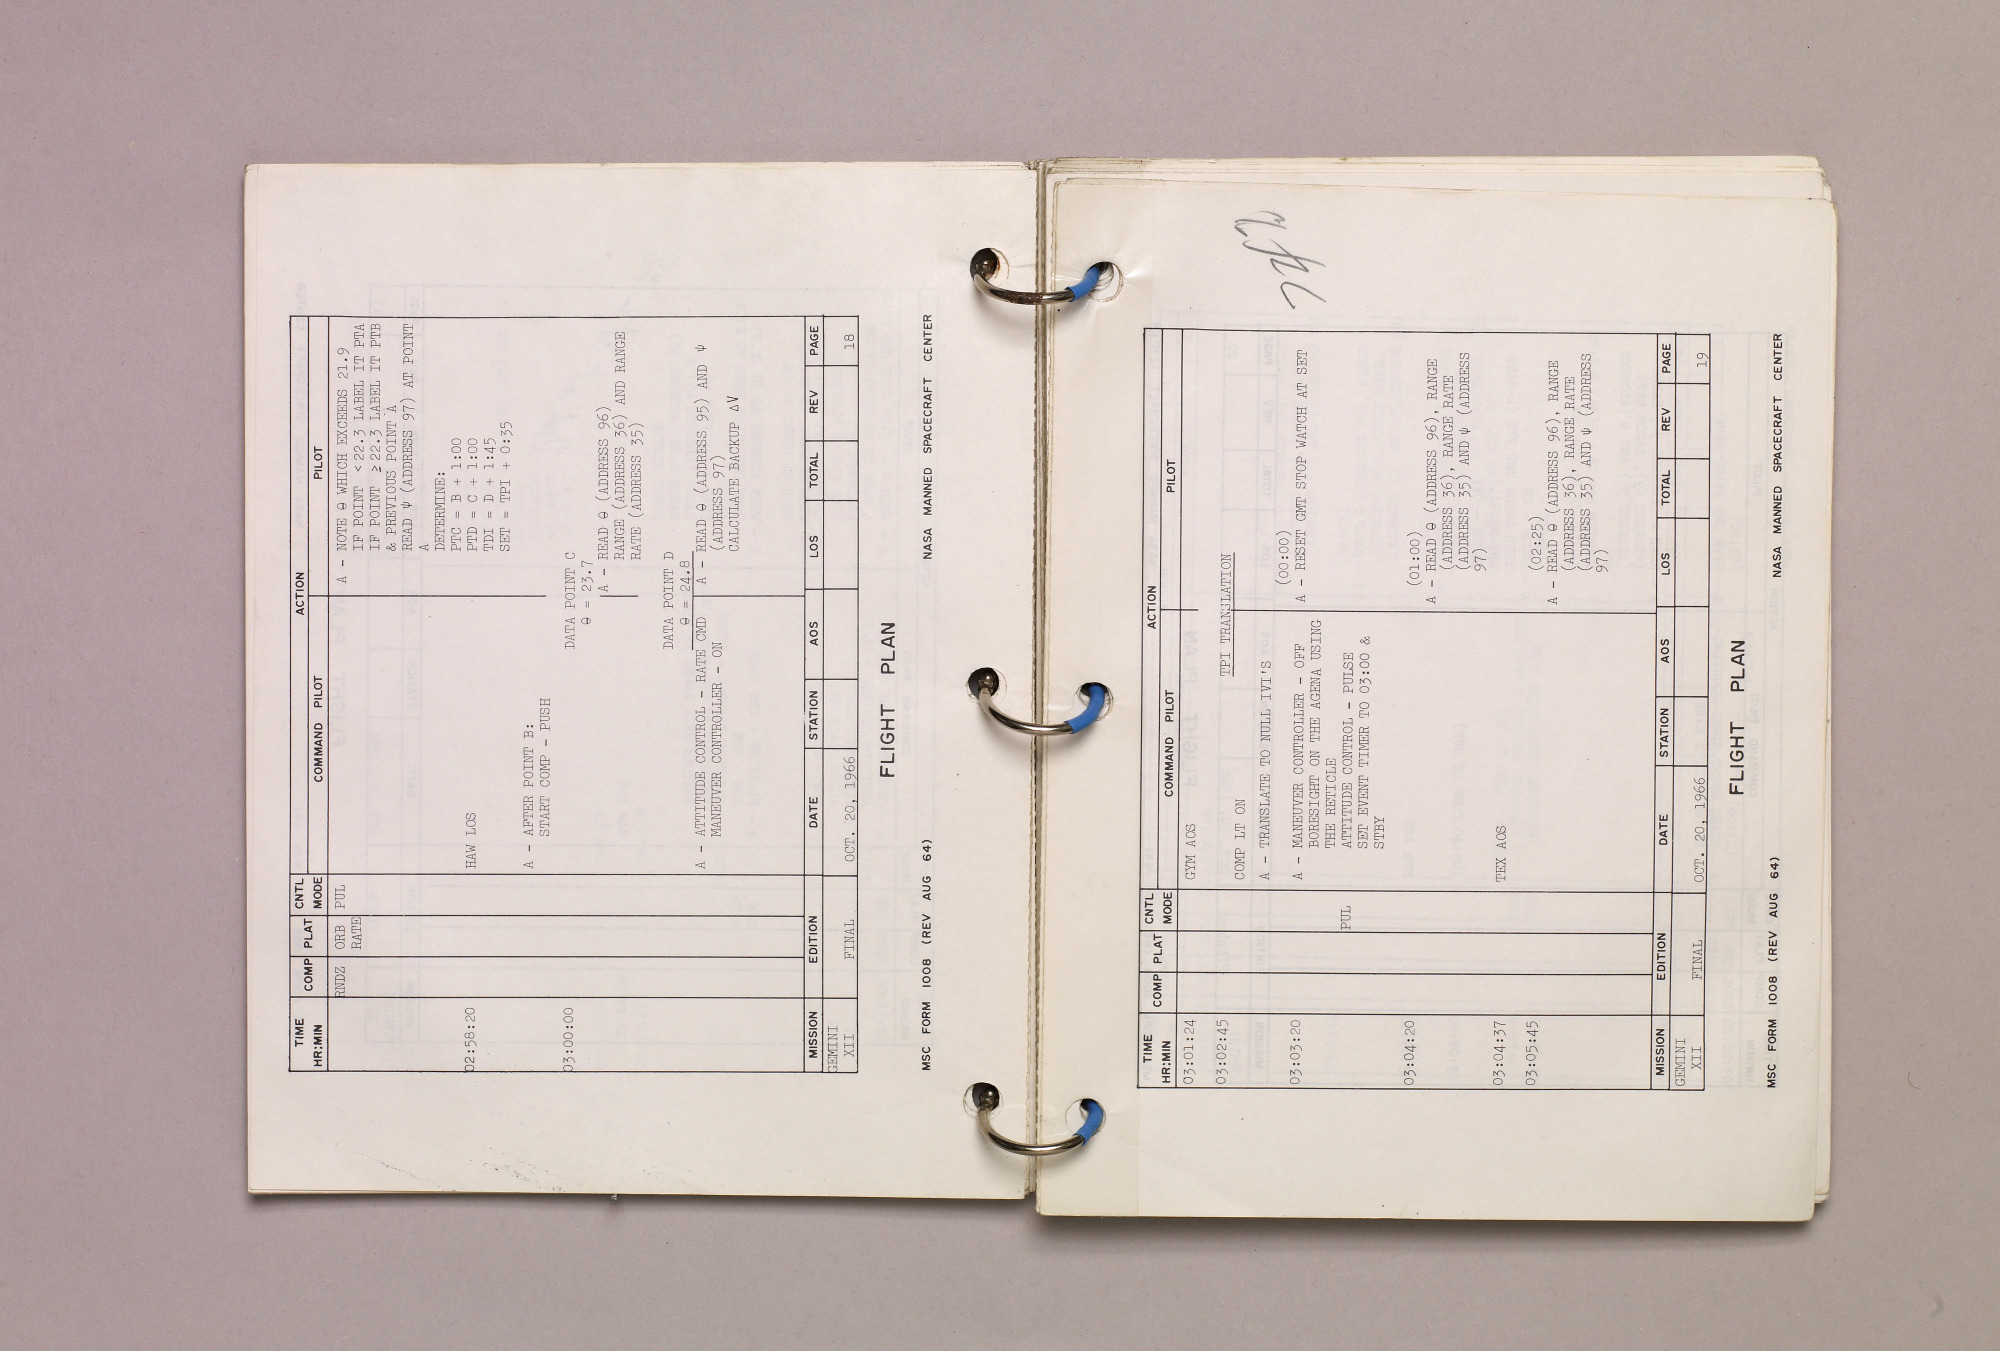 TIME
HR:MIN
COMP
PLAT
CNTL
MODE
ACTION
COMMAND PILOT
PILOT
RNDZ
ORB
RATE
PUL
A - NOTE θ WHICH EXCEEDS 21.9
IF POINT < 22.3 LABEL IT PTA
IF POINT ≥ 22.3 LABEL IT PTB
& PREVIOUS POINT A
READ ψ (ADDRESS 97) AT POINT
A
DETERMINE:
PTC = B + 1:00
02:58:20
HAW LOS
PTD = C + 1:00
TDI = D + 1:45
SET = TPI + 0:35
A - AFTER POINT B:
START COMP - PUSH
03:00:00
DATA POINT C
θ = 23.7
A - READ θ (ADDRESS 96)
RANGE (ADDRESS 36) AND RANGE
RATE (ADDRESS 35)
DATA POINT D
θ = 24.8
A - ATTITUDE CONTROL - RATE CMD
MANEUVER CONTROLLER - ON
A - READ θ (ADDRESS 95) AND ψ
(ADDRESS 97)
CALCULATE BACKUP ΔV
MISSION
EDITION
DATE
STATION
AOS
LOS
TOTAL
REV
PAGE
GEMINI
XII
FINAL
OCT. 20, 1966
18
FLIGHT PLAN
MSC FORM 1008 (REV AUG 64)
NASA MANNED SPACECRAFT CENTER
TIME
HR:MIN
COMP
PLAT
CNTL
MODE
ACTION
COMMAND PILOT
PILOT
03:01:24
GYM AOS
03:02:45
TPI TRANSLATION
COMP LT ON
A - TRANSLATE TO NULL IVI'S
03:03:20
(00:00)
A - MANEUVER CONTROLLER - OFF
BORESIGHT ON THE AGENA USING
THE RETICLE
A - RESET GMT STOP WATCH AT SET
PUL
ATTITUDE CONTROL - PULSE
SET EVENT TIMER TO 03:00 &
STBY
03:04:20
(01:00)
A - READ θ (ADDRESS 96), RANGE
(ADDRESS 36), RANGE RATE
(ADDRESS 35) AND ψ (ADDRESS
97)
03:04:37
TEX AOS
03:05:45
(02:25)
A - READ θ (ADDRESS 96), RANGE
(ADDRESS 36), RANGE RATE
(ADDRESS 35) AND ψ (ADDRESS
97)
MISSION
EDITION
DATE
STATION
AOS
LOS
TOTAL
REV
PAGE
GEMINI
XII
FINAL
OCT. 20, 1966
19
FLIGHT PLAN
MSC FORM 1008 (REV AUG 64)
NASA MANNED SPACECRAFT CENTER